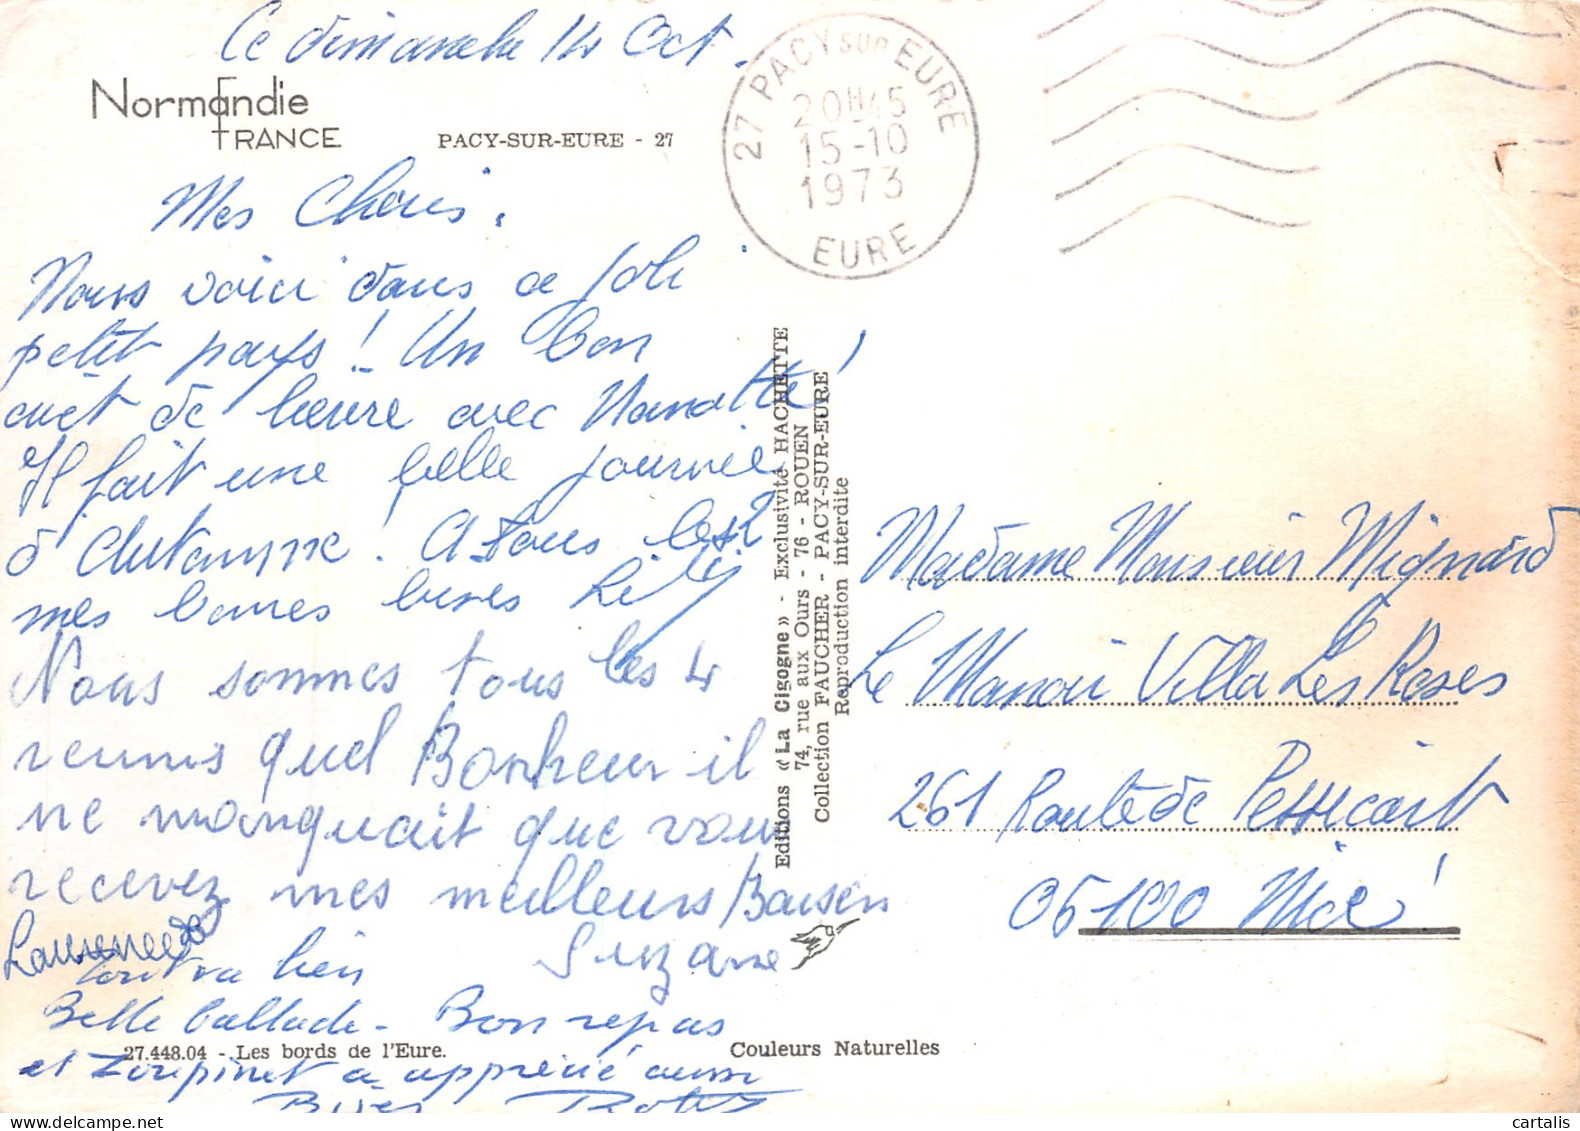 Ce dimanche 14 Oct.
Normandie
FRANCE
PACY-SUR-EURE - 27
27 PACY SUR EURE
20H45
15-10
1973
EURE
Mes Chéris,
Nous voici dans ce joli
petit pays! Un bon
civet de lièvre avec Nanette!
Il fait une belle journée
d'Automne. A tous les 2
mes bonnes bises Lily
Nous sommes tous les 4
reunis quel Bonheur il
ne manquait que vous
recevez mes meilleurs Baisers
Suzane
Laurence
Tout va bien
Belle ballade - Bon repas
et Zoupinet a apprécié aussi
Bises
Editions « La Cigogne » - Exclusivité HACHETTE
74, rue aux Ours - 76 - ROUEN
Collection FAUCHER - PACY-SUR-EURE
Reproduction interdite
Madame Monsieur Mignard
Le Manoir Villa Les Roses
261 Route de Pessicart
06100 Nice!
27.448.04 - Les bords de l'Eure.
Couleurs Naturelles
cartalis